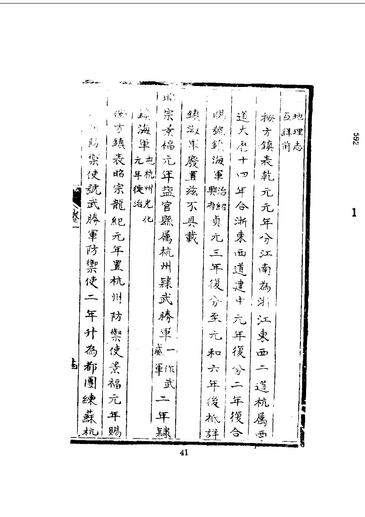 地理志
互詳前
按方鎮表乾元元年分江南為浙江東西二道杭屬西
道大厯十四年合浙東西道建中元年復分二年復合
賜號鎮海軍治紹興府貞元三年復分至元和六年後祗詳
鎮海軍廢置兹不具載
昭宗景福元年鹽官縣屬杭州隸武勝軍一作武威軍二年隸
鎮海軍屯杭州光化元年復治
按方鎮表昭宗龍紀元年置杭州防禦使景福元年賜
防禦使號武勝軍防禦使二年升為都團練蘇杭
592
1
41